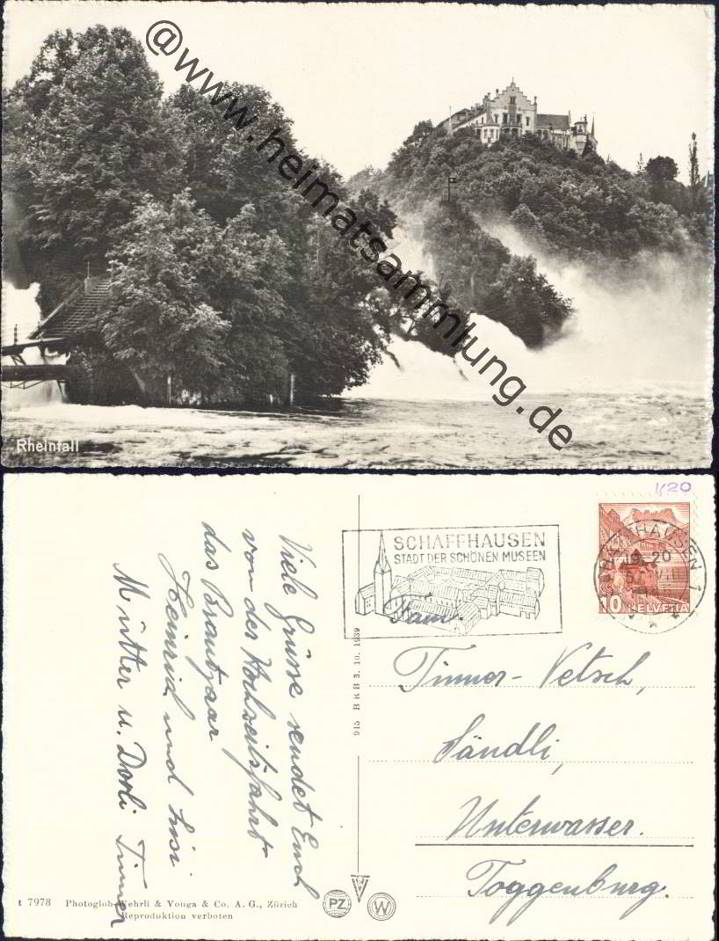 @www.heimatsammlung.de
Rheinfall
k20
SCHAFFHAUSEN
STADT DER SCHÖNEN MUSEEN
SCHAFFHAUSEN 1
10 HELVETIA
Fam.
Timner-Vetsch,
Sändli,
Unterwasser.
Toggenburg.
Viele Grüsse sendet Euch
von der Hochzeitsfahrt
das Brautpaar
Heinrich und Lisi
Mutter u. Dorli
915 HKB 3. 10. 1939
t 7978 Photoglob-Wehrli & Vouga & Co. A. G., Zürich
Reproduktion verboten
PZ
W